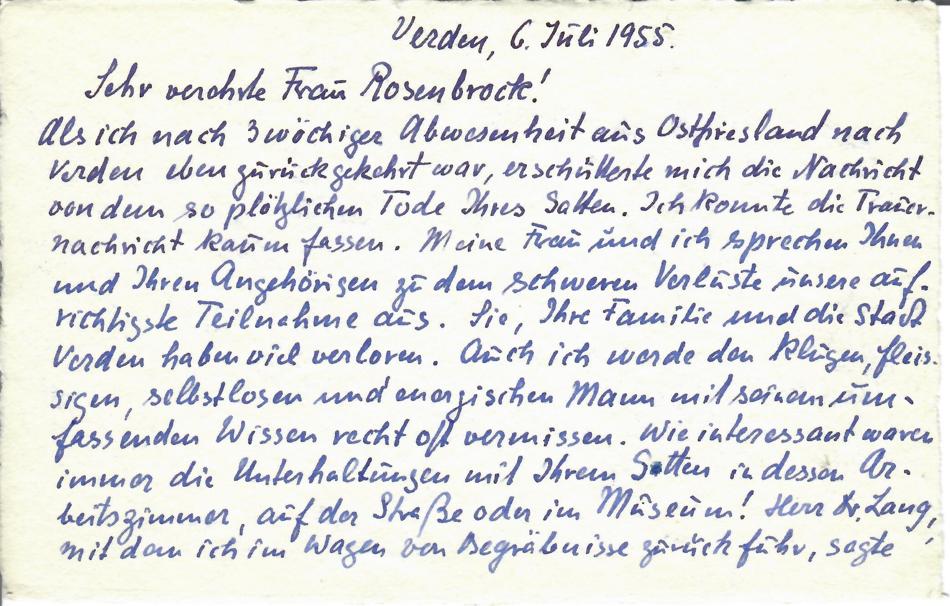 Verden, 6. Juli 1955.
Sehr verehrte Frau Rosenbrock!
Als ich nach 3wöchiger Abwesenheit aus Ostfriesland nach
Verden eben zurückgekehrt war, erschütterte mich die Nachricht
von dem so plötzlichen Tode Ihres Gatten. Ich konnte die Trauer-
nachricht kaum fassen. Meine Frau und ich sprechen Ihnen
und Ihren Angehörigen zu dem schweren Verluste unsere auf-
richtigste Teilnahme aus. Sie, Ihre Familie und die Stadt
Verden haben viel verloren. Auch ich werde den klugen, fleis-
sigen, selbstlosen und energischen Mann mit seinem um-
fassenden Wissen recht oft vermissen. Wie interessant waren
immer die Unterhaltungen mit Ihrem Gatten in dessen Ar-
beitszimmer, auf der Straße oder im Museum! Herr Dr. Lang,
mit dem ich im Wagen von Begräbnisse zurück fuhr, sagte